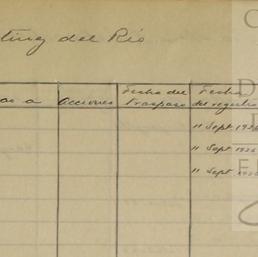 ting del Rio
as a Acciones Fecha del Traspaso Fecha del registro
11 Sept 1936
11 Sept 1936
11 Sept 1936